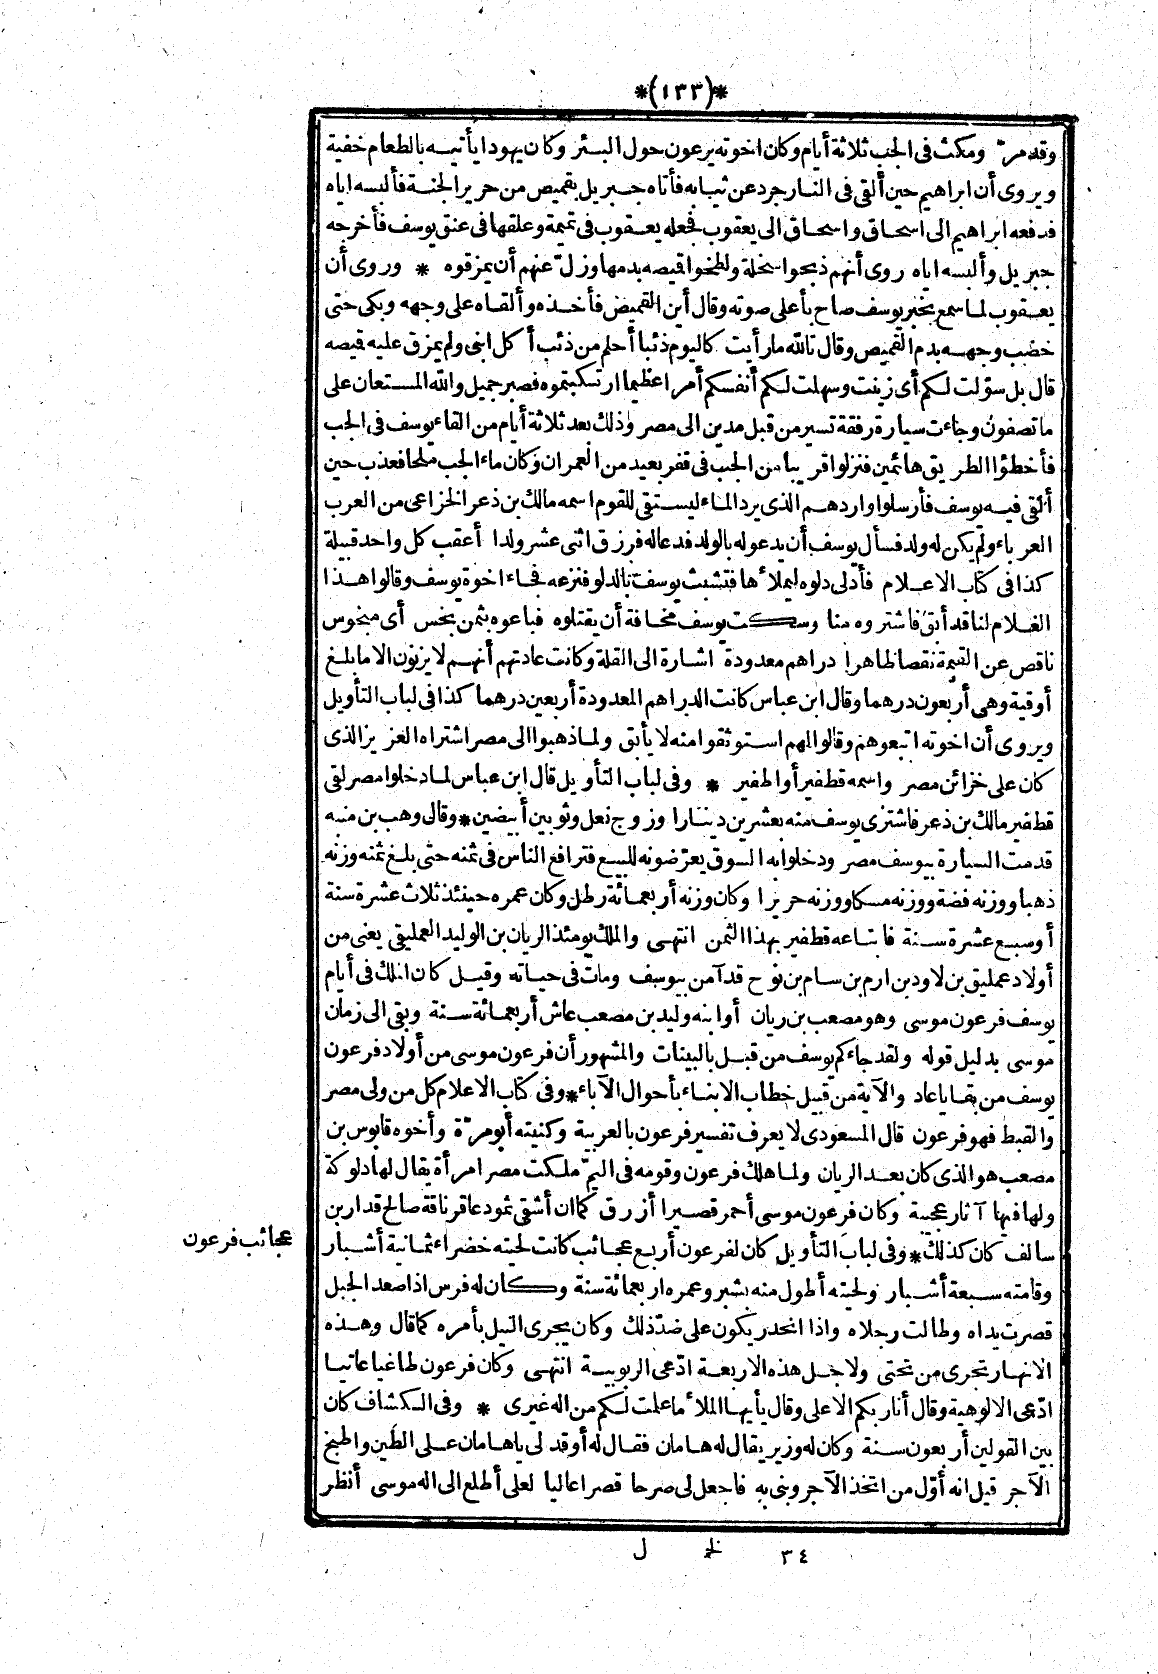 *(١٣٣)*
وقد مرّ ومكث فى الجب ثلاثة أيام وكان اخوته يرعون حول البئر وكان يهودا يأتيه بالطعام خفية
ويروى أن ابراهيم حين ألقى فى النار جرد عن ثيابه فأتاه جبريل بقميص من حرير الجنة فألبسه اياه
فدفعه ابراهيم الى اسحاق واسحاق الى يعقوب فجعله يعقوب فى تميمة وعلقها فى عنق يوسف فأخرجه
جبريل وألبسه اياه روى أنهم ذبحوا سخلة ولطخوا قميصه بدمها وزلّ عنهم أن يمزقوه * وروى أن
يعقوب لما سمع بخبر يوسف صاح بأعلى صوته وقال أين القميص فأخذه وألقاه على وجهه وبكى حتى
خضب وجهه بدم القميص وقال تالله ما رأيت كاليوم ذئبا أحلم من ذئب أكل ابنى ولم يمزق عليه قميصه
قال بل سوّلت لكم أى زينت وسهلت لكم أنفسكم أمرا عظيما ارتكبتموه فصبر جميل والله المستعان على
ما تصفون وجاءت سيارة رفقة تسير من قبل مدين الى مصر وذلك بعد ثلاثة أيام من القاء يوسف فى الجب
فأخطؤا الطريق هائمين فنزلوا قريبا من الجب فى قفر بعيد من العمران وكان ماء الجب ملحا فعذب حين
ألقى فيه يوسف فأرسلوا واردهم الذى يرد الماء ليستقى للقوم اسمه مالك بن ذعر الخزاعى من العرب
العرباء ولم يكن له ولد فسأل يوسف أن يدعو له بالولد فدعا له فرزق اثنى عشر ولدا أعقب كل واحد قبيلة
كذا فى كتاب الاعلام فأدلى دلوه ليملأها فتشبث يوسف بالدلو فنزعه فجاء اخوة يوسف وقالوا هذا
الغلام لنا قد أبق فاشتروه منا وسكت يوسف مخافة أن يقتلوه فباعوه بثمن بخس أى مبخوس
ناقص عن القيمة نقصا ظاهرا دراهم معدودة اشارة الى القلة وكانت عادتهم أنهم لا يزنون الا ما بلغ
أوقية وهى أربعون درهما وقال ابن عباس كانت الدراهم المعدودة أربعين درهما كذا فى لباب التأويل
ويروى أن اخوته اتبعوهم وقالوا لهم استوثقوا منه لا يأبق ولما ذهبوا الى مصر اشتراه العزيز الذى
كان على خزائن مصر واسمه قطفير أو اطفير * وفى لباب التأويل قال ابن عباس لما دخلوا مصر لقى
قطفير مالك بن ذعر فاشترى يوسف منه بعشرين دينارا وزوج نعل وثوبين أبيضين * وقال وهب بن منبه
قدمت السيارة بيوسف مصر ودخلوا به السوق يعرّضونه للبيع فترافع الناس فى ثمنه حتى بلغ ثمنه وزنه
ذهبا ووزنه فضة ووزنه مسكا ووزنه حريرا وكان وزنه أربعمائة رطل وكان عمره حينئذ ثلاث عشرة سنة
أو سبع عشرة سنة فابتاعه قطفير بهذا الثمن انتهى والملك يومئذ الريان بن الوليد العمليقى يعنى من
أولاد عمليق بن لاود بن ارم بن سام بن نوح قد آمن بيوسف ومات فى حياته وقيل كان الملك فى أيام
يوسف فرعون موسى وهو مصعب بن ريان أو ابنه وليد بن مصعب عاش أربعمائة سنة وبقى الى زمان
موسى بدليل قوله ولقد جاءكم يوسف من قبل بالبينات والمشهور أن فرعون موسى من أولاد فرعون
يوسف من بقايا عاد والآية من قبيل خطاب الابناء بأحوال الآباء * وفى كتاب الاعلام كل من ولى مصر
والقبط فهو فرعون قال المسعودى لا يعرف تفسير فرعون بالعربية وكنيته أبو مرّة وأخوه قابوس بن
مصعب هو الذى كان بعد الريان ولما هلك فرعون وقومه فى اليمّ ملكت مصر امرأة يقال لها دلوكة
ولها فيها آثار عجيبة وكان فرعون موسى أحمر قصيرا أزرق كما ان أشقى ثمود عاقر ناقة صالح قدار بن
سالف كان كذلك * وفى لباب التأويل كان لفرعون أربع عجائب كانت لحيته خضراء ثمانية أشبار
عجائب فرعون
وقامته سبعة أشبار ولحيته أطول منه بشبر وعمره اربعمائة سنة وكان له فرس اذا صعد الجبل
قصرت يداه وطالت رجلاه واذا انحدر يكون على ضدّ ذلك وكان يجرى النيل بأمره كما قال وهذه
الانهار تجرى من تحتى ولاجل هذه الاربعة ادّعى الربوبية انتهى وكان فرعون طاغيا عاتيا
ادّعى الالوهية وقال أنا ربكم الاعلى وقال يأيها الملأ ما علمت لكم من اله غيرى * وفى الكشاف كان
بين القولين أربعون سنة وكان له وزير يقال له هامان فقال له أوقد لى ياهامان على الطين واطبخ
الآجر قيل انه أوّل من اتخذ الآجر وبنى به فاجعل لى صرحا قصرا عاليا لعلى أطلع الى اله موسى أنظر
٣٤ ل